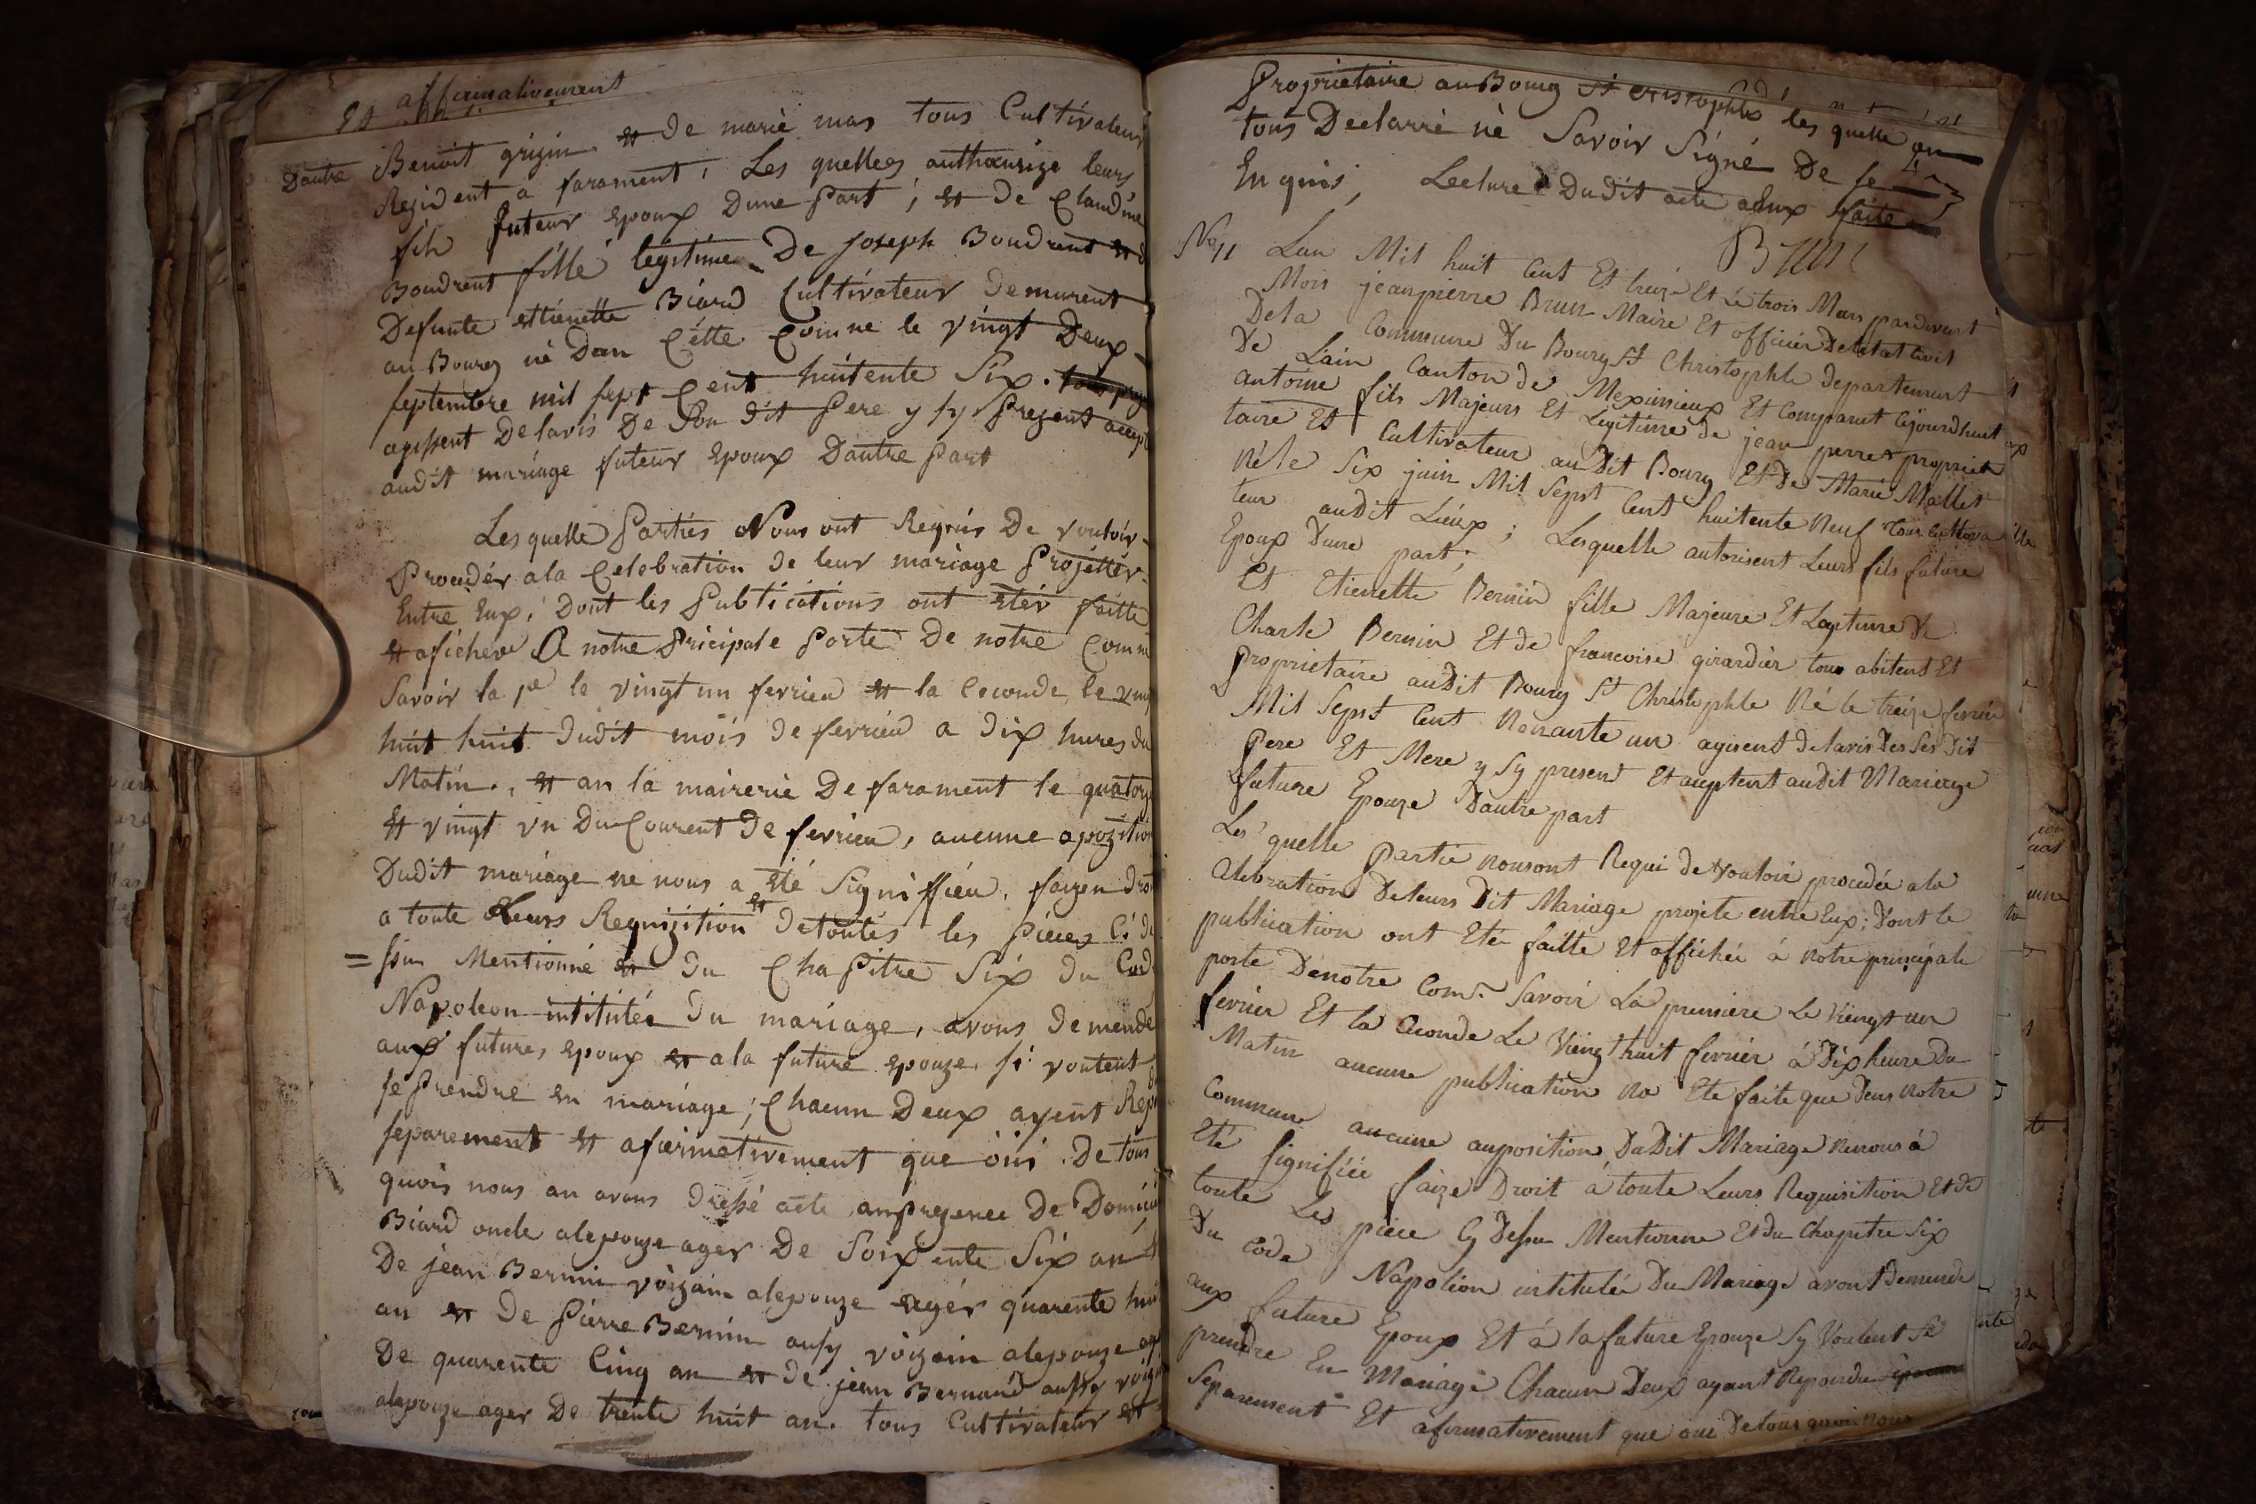 affirmativement
Benoit grizin et de marie mas tous Cultivateur
Dautre
Rezident a farament, Les quelles authaurize leurs
fils futeur epoux Dune Part ; et de Claudine
Boudrent fille légitime De joseph Boudrent et d
Defunte ettienette Biard Cultivateur demurent
au Bourg né Dan Cette Comne le vingt Deux
septembre mil sept Cent huitente Six.
agissent Delavis De Son dit Pere y sy Prezent accep
audit mariage futeur Epoux Dautre Part
Les quelle Parties Nous ont Requis De vouloir
Proceder ala Celebration de leur mariage Projetter
Entre Eux, Dont les Publications ont Eter faitte
et afichere A notre Pricipale Porte De notre Comne
Savoir la 1re le vingt un ferrieu et la Ceconde le ving
huit huit dudit mois de ferrieu a dix hures du
Matin., et an la mairerie De farament le quatorz
et vingt vn Du Courent De ferrieu, aucunne apozition
Dudit mariage ne nous a Eté Signiffiéu. fazen Droi
a toute Leurs Requizition et detoutes les Pieces Ci de
= ssu Mentionné et du ChaPitre Six du Code
Napoleon intitulée du mariage, avons demende
aux future, epoux et ala future epouze. si voutent
se Prendre en mariage ; Chacun Deux ayent Repo
separement et afirmetivement que oui. De tous
quois nous an avons dressé acte anprezence De Dominic
Biard oncle alepouze ager De Soixente Six an
De jean Bernin voizain alepouze ager quarente huit
an et De Pierre Bernin aussy voizain alepouze ag
De quarente Cinq an et de jean Bernand aussy voiz
alepouze ager De trente huit an. tous Cultivateur et
Proprietaire au Bourg St Cristophle les quelle on
tous Declarré né Savoir Signé De se
En quis, Lecture Du dit acte a Eux faite
Brun
No 11 Lan Mil huit Cent Et treize Et Le trois Mars pardevant
Mois jeanpierre Brun Maire Et officier Deletat Civil
Dela Commune Du Bourg St Christophle departement
De Lain Canton de Meximieux Et Comparut Cejourdhuit
antoine fils Majeurs Et Legitime de jean perret propriet
taire Et Cultivateur au Dit Bourg Et De Marie Mallet
Né le Six juin Mil Sepst Cent huitente Neuf Tous Cultiva
teur audit Lieux ; Lesquelle autorisent Leurs fils future
Epoux Dune part ;
Et Etienette Bernin fille Majeure Et Legitime De
Charle Bernin Et de francoise girardier tous abitent Et
proprietaire audit Bourg St Christophle Né le treize fevrier
Mil Sepst Cent Nonante un agisent delavis Des Ses Dit
pere Et Mere y Sy present Et aceptent audit Mariage
future Epouze Dautre part
Les quelle partie nousont Requi de Vouloir proceder ala
Celebration De leurs Dit Mariage projete entre Eux ; Dont le
publication ont Eté faitte Et affichée à Notre principale
porte Denotre Com.ne Savoir La premiere Le Vingt un
fevrier Et la Ceconde Le Vingt huit fevrier à Dix heure Du
Matin aucune publication Na Ete faite que dens Notre
Commune aucune auposition Du Dit Mariage Nenous à
Eté signifiée faize Droit à toute Leurs Requisition Et de
toute Les piece Cy Dessu Mentionne Et du Chapitre Six
Du Code Napolion intitulée Du Mariage avont Demende
aux future Epoux Et à la future Epouze Sy Voulent Se
prendre En Mariage Chacun Deux ayant Repondu
Separement Et afirmativement que oui De tous quoi nous